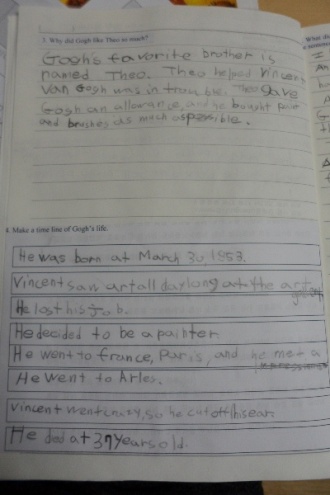 3. Why did Gogh like Theo so much?
Gogh's favorite brother is
named Theo. Theo helped Vincent
Van Gogh was in trouble. Theo gave
Gogh an allowance, and he bought paint
and brushes as much as possible.
4. Make a time line of Gogh's life.
He was born at March 30, 1853.
Vincent saw art all day long at the art
He lost his job.
He decided to be a painter
He went to france, Paris, and he met a
He went to Arles.
Vincent went crazy, so he cut off his ear.
He died at 37 years old.